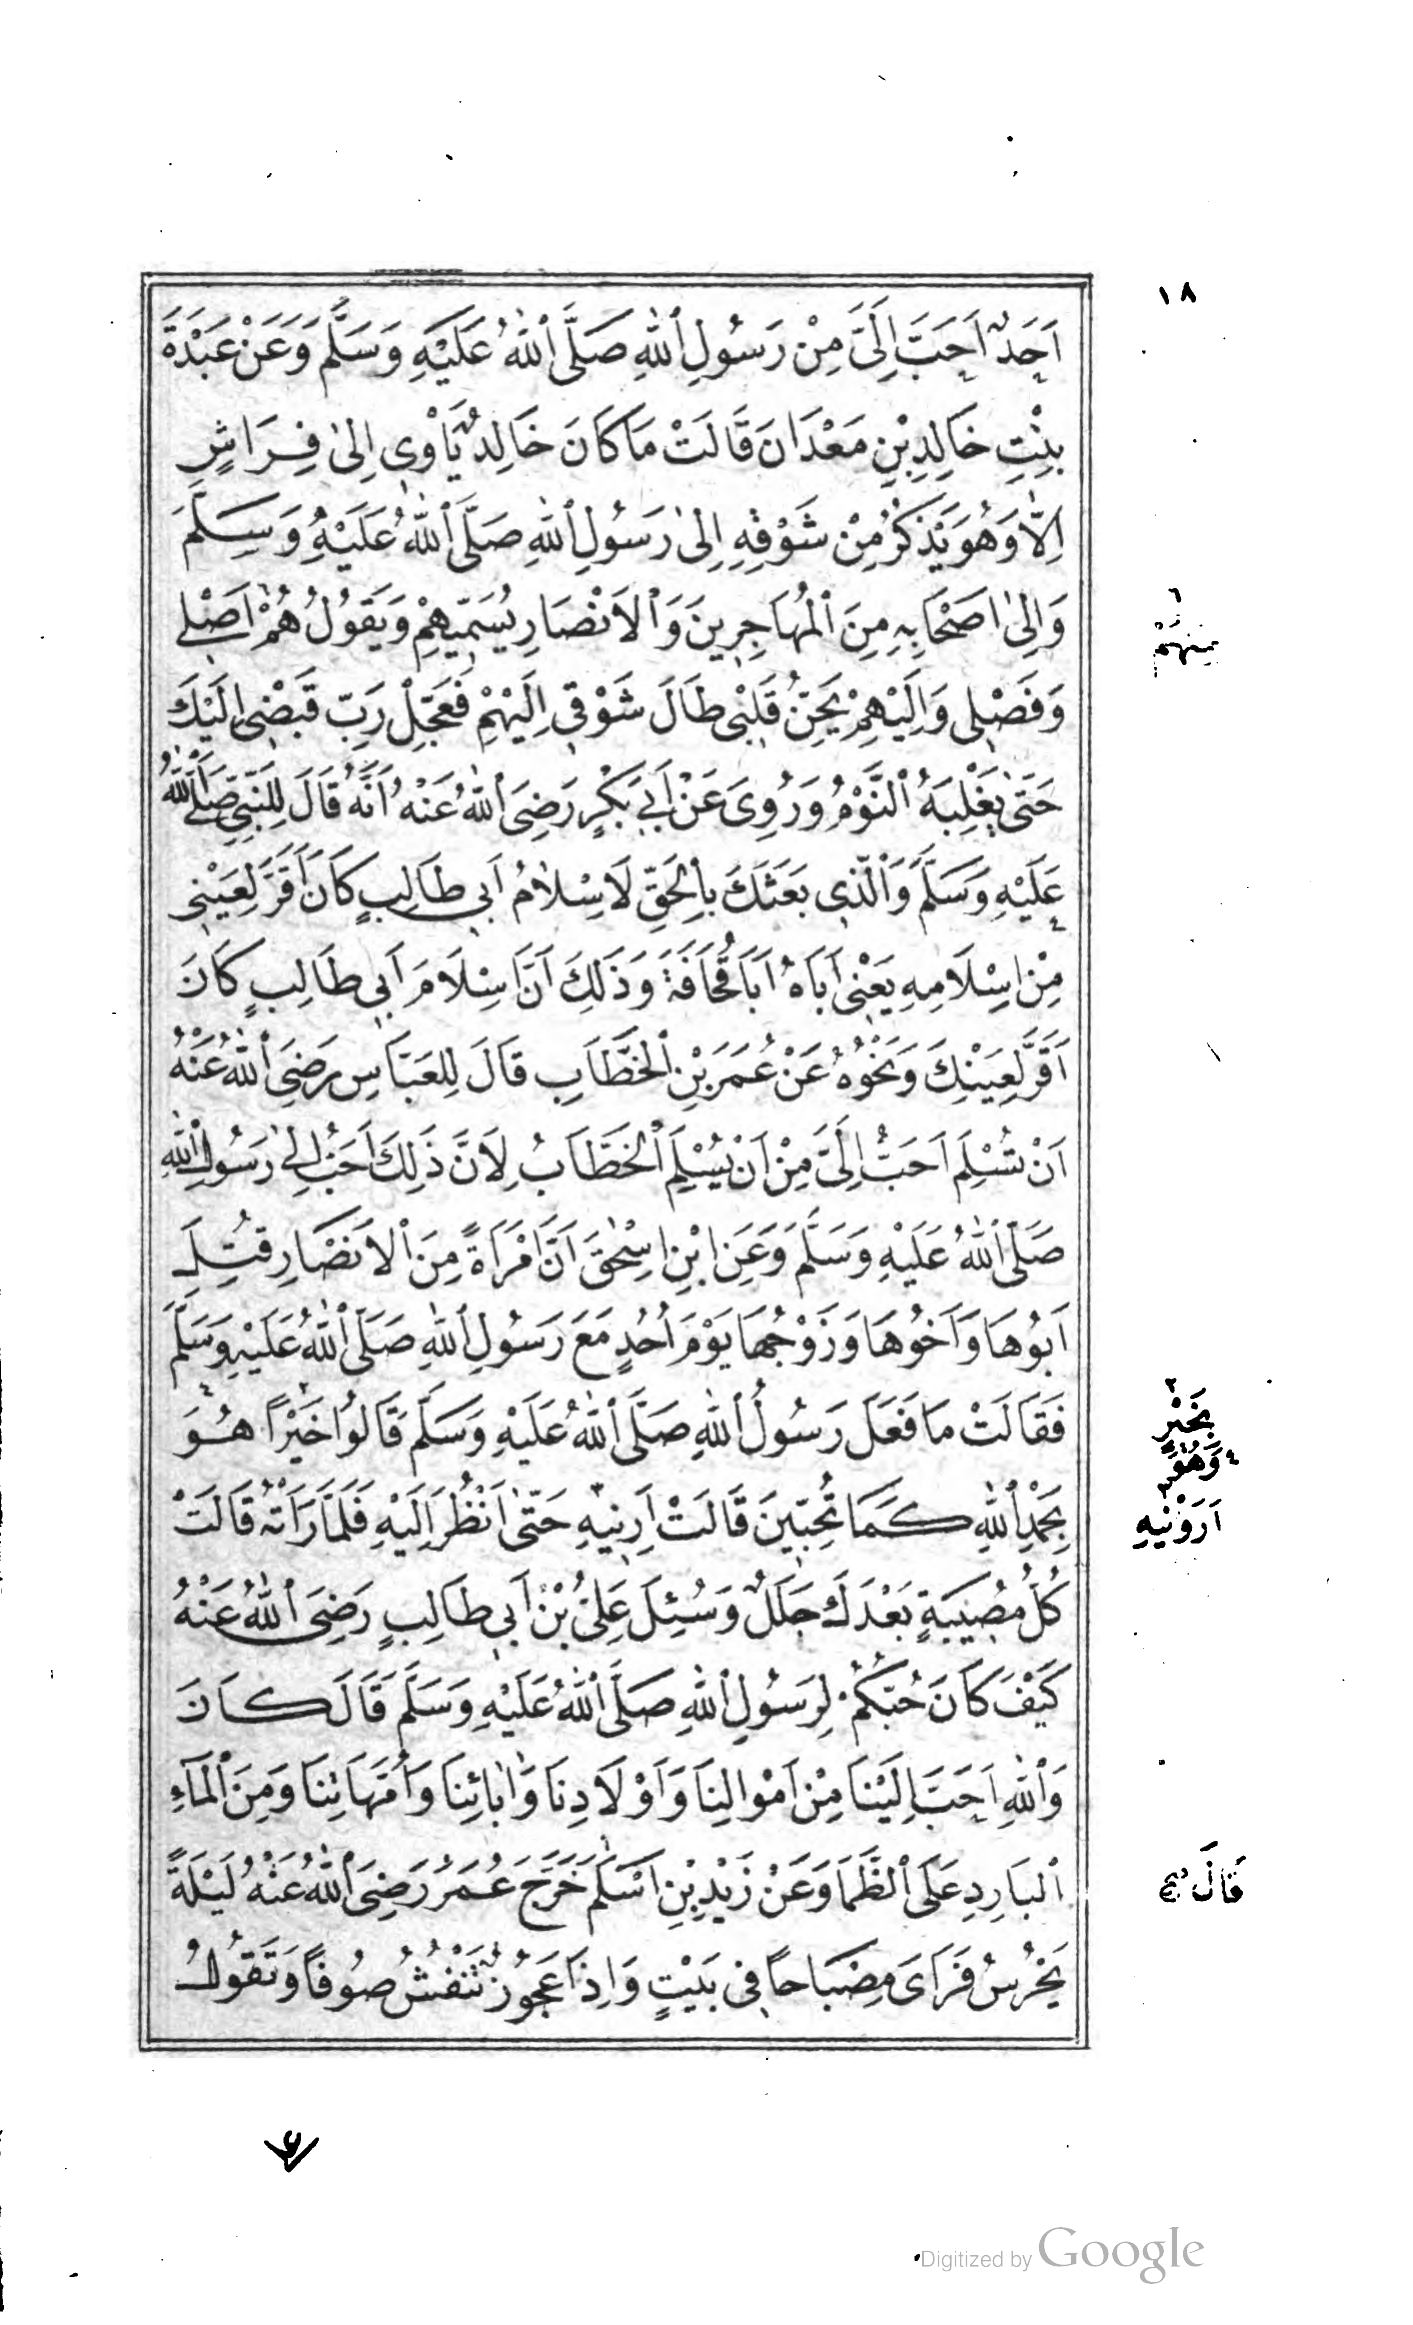 ١٨
اَحَدٌ اَحَبَّ اِلَىَّ مِنْ رَسُولِ اللهِ صَلَّى اللهُ عَلَيْهِ وَسَلَّمَ وَعَنْ عَبْدَةَ
بِنْتِ خَالِدِ بْنِ مَعْدَانَ قَالَتْ مَا كَانَ خَالِدٌ يَأْوِى اِلىٰ فِرَاشٍ
اِلَّا وَهُوَ يَذْكُرُ مِنْ شَوْقِهِ اِلىٰ رَسُولِ اللهِ صَلَّى اللهُ عَلَيْهِ وَسَلَّمَ
وَاِلىٰ اَصْحَابِهِ مِنَ الْمُهَاجِرِينَ وَالْاَنْصَارِ يُسَمِّيهِمْ وَيَقُولُ هُمْ اَصْلِى
مِنْهُمْ
وَفَصْلِى وَاِلَيْهِمْ يَحِنُّ قَلْبِى طَالَ شَوْقِى اِلَيْهِمْ فَعَجِّلْ رَبِّ قَبْضِى اِلَيْكَ
حَتّٰى يَغْلِبَهُ النَّوْمُ وَرُوِىَ عَنْ اَبِى بَكْرٍ رَضِىَ اللهُ عَنْهُ اَنَّهُ قَالَ لِلنَّبِىِّ صَلَّى اللهُ
عَلَيْهِ وَسَلَّمَ وَالَّذِى بَعَثَكَ بِالْحَقِّ لَاِسْلَامُ اَبِى طَالِبٍ كَانَ اَقَرَّ لِعَيْنِى
مِنْ اِسْلَامِهِ يَعْنِى اَبَاهُ اَبَا قُحَافَةَ وَذَلِكَ اَنَّ اِسْلَامَ اَبِى طَالِبٍ كَانَ
اَقَرَّ لِعَيْنِكَ وَنَحْوُهُ عَنْ عُمَرَ بْنِ الْخَطَّابِ قَالَ لِلْعَبَّاسِ رَضِىَ اللهُ عَنْهُ
اَنْ تُسْلِمَ اَحَبُّ اِلَىَّ مِنْ اَنْ يُسْلِمَ الْخَطَّابُ لِاَنَّ ذَلِكَ اَحَبُّ اِلىٰ رَسُولِ اللهِ
صَلَّى اللهُ عَلَيْهِ وَسَلَّمَ وَعَنِ ابْنِ اِسْحٰقَ اَنَّ امْرَاَةً مِنَ الْاَنْصَارِ قُتِلَ
اَبُوهَا وَاَخُوهَا وَزَوْجُهَا يَوْمَ اُحُدٍ مَعَ رَسُولِ اللهِ صَلَّى اللهُ عَلَيْهِ وَسَلَّمَ
فَقَالَتْ مَا فَعَلَ رَسُولُ اللهِ صَلَّى اللهُ عَلَيْهِ وَسَلَّمَ قَالُوا خَيْرًا هُوَ
بِخَيْرٍ
وَهُوَ
بِحَمْدِ اللهِ كَمَا تُحِبِّينَ قَالَتْ اَرِنِيهِ حَتّٰى اَنْظُرَ اِلَيْهِ فَلَمَّا رَاَتْهُ قَالَتْ
اَرَوْنِيهِ
كُلُّ مُصِيبَةٍ بَعْدَكَ جَلَلٌ وَسُئِلَ عَلِىُّ بْنُ اَبِى طَالِبٍ رَضِىَ اللهُ عَنْهُ
كَيْفَ كَانَ حُبُّكُمْ لِرَسُولِ اللهِ صَلَّى اللهُ عَلَيْهِ وَسَلَّمَ قَالَ كَانَ
وَاللهِ اَحَبَّ اِلَيْنَا مِنْ اَمْوَالِنَا وَاَوْلَادِنَا وَاٰبَائِنَا وَاُمَّهَاتِنَا وَمِنَ الْمَاءِ
الْبَارِدِ عَلَى الظَّمَاِ وَعَنْ زَيْدِ بْنِ اَسْلَمَ خَرَجَ عُمَرُ رَضِىَ اللهُ عَنْهُ لَيْلَةً
قَالَ
يَحْرُسُ فَرَاَى مِصْبَاحًا فِى بَيْتٍ وَاِذَا عَجُوزٌ تَنْفُشُ صُوفًا وَتَقُولُ
Digitized by Google